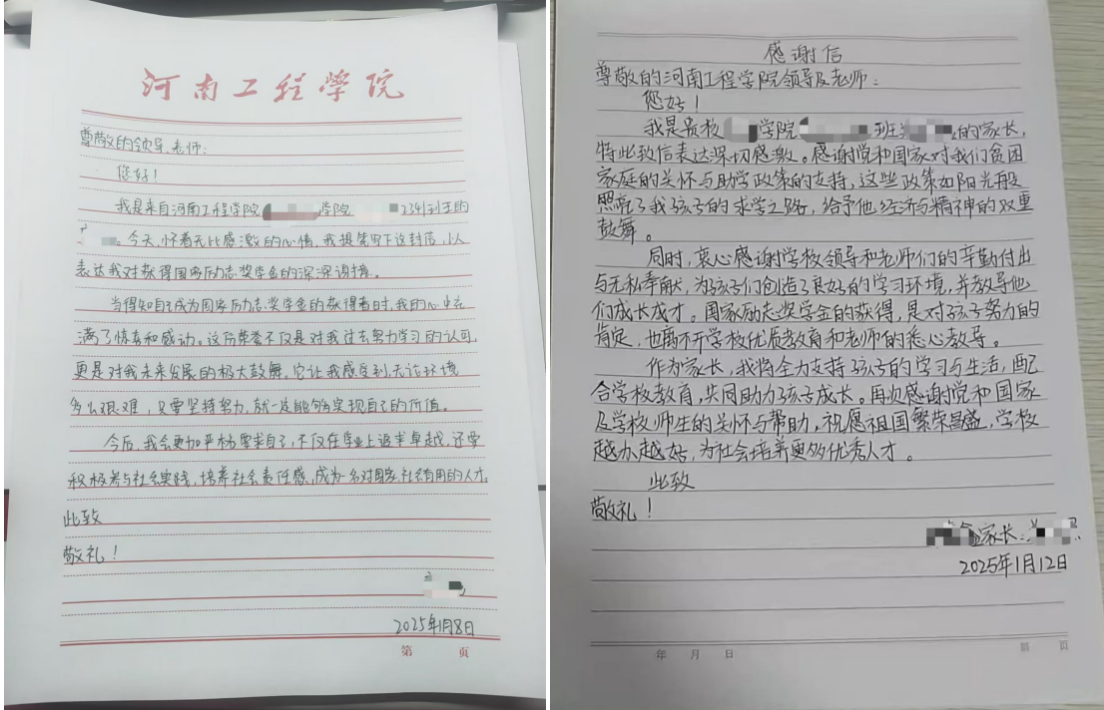 河南工程學院
尊敬的领导、老师:
您好!
我是来自河南工程学院 学院 2341班的
。今天,怀着无比感激的心情,我提笔写下这封信,以
表达我对获得国家励志奖学金的深深谢意。
当得知自己成为国家励志奖学金的获得者时,我的心中充
满了惊喜和感动。这份荣誉不仅是对我过去努力学习的认可,
更是对我未来发展的极大鼓舞。它让我感受到,无论环境
多么艰难,只要坚持努力,就一定能够实现自己的价值。
今后,我会更加严格要求自己,不仅在学业上追求卓越,还要
积极参与社会实践,培养社会责任感,成为一名对国家、社会有用的人才。
此致
敬礼!
2025年1月8日
第 页
感谢信
尊敬的河南工程学院领导及老师:
您好!
我是贵校 学院 班 的家长,
特此致信表达深切感激。感谢党和国家对我们贫困
家庭的关怀与助学政策的支持,这些政策如阳光般
照亮了我孩子的求学之路,给予他经济与精神的双重
鼓舞。
同时,衷心感谢学校领导和老师们的辛勤付出
与无私奉献,为孩子们创造了良好的学习环境,并教导他
们成长成才。国家励志奖学金的获得,是对孩子努力的
肯定,也离不开学校优质教育和老师的悉心教导。
作为家长,我将全力支持孩子的学习与生活,配
合学校教育,共同助力孩子成长。再次感谢党和国家
及学校师生的关怀与帮助,祝愿祖国繁荣昌盛,学校
越办越好,为社会培养更多优秀人才。
此致
敬礼!
家长:
2025年1月12日
年 月 日
第 页